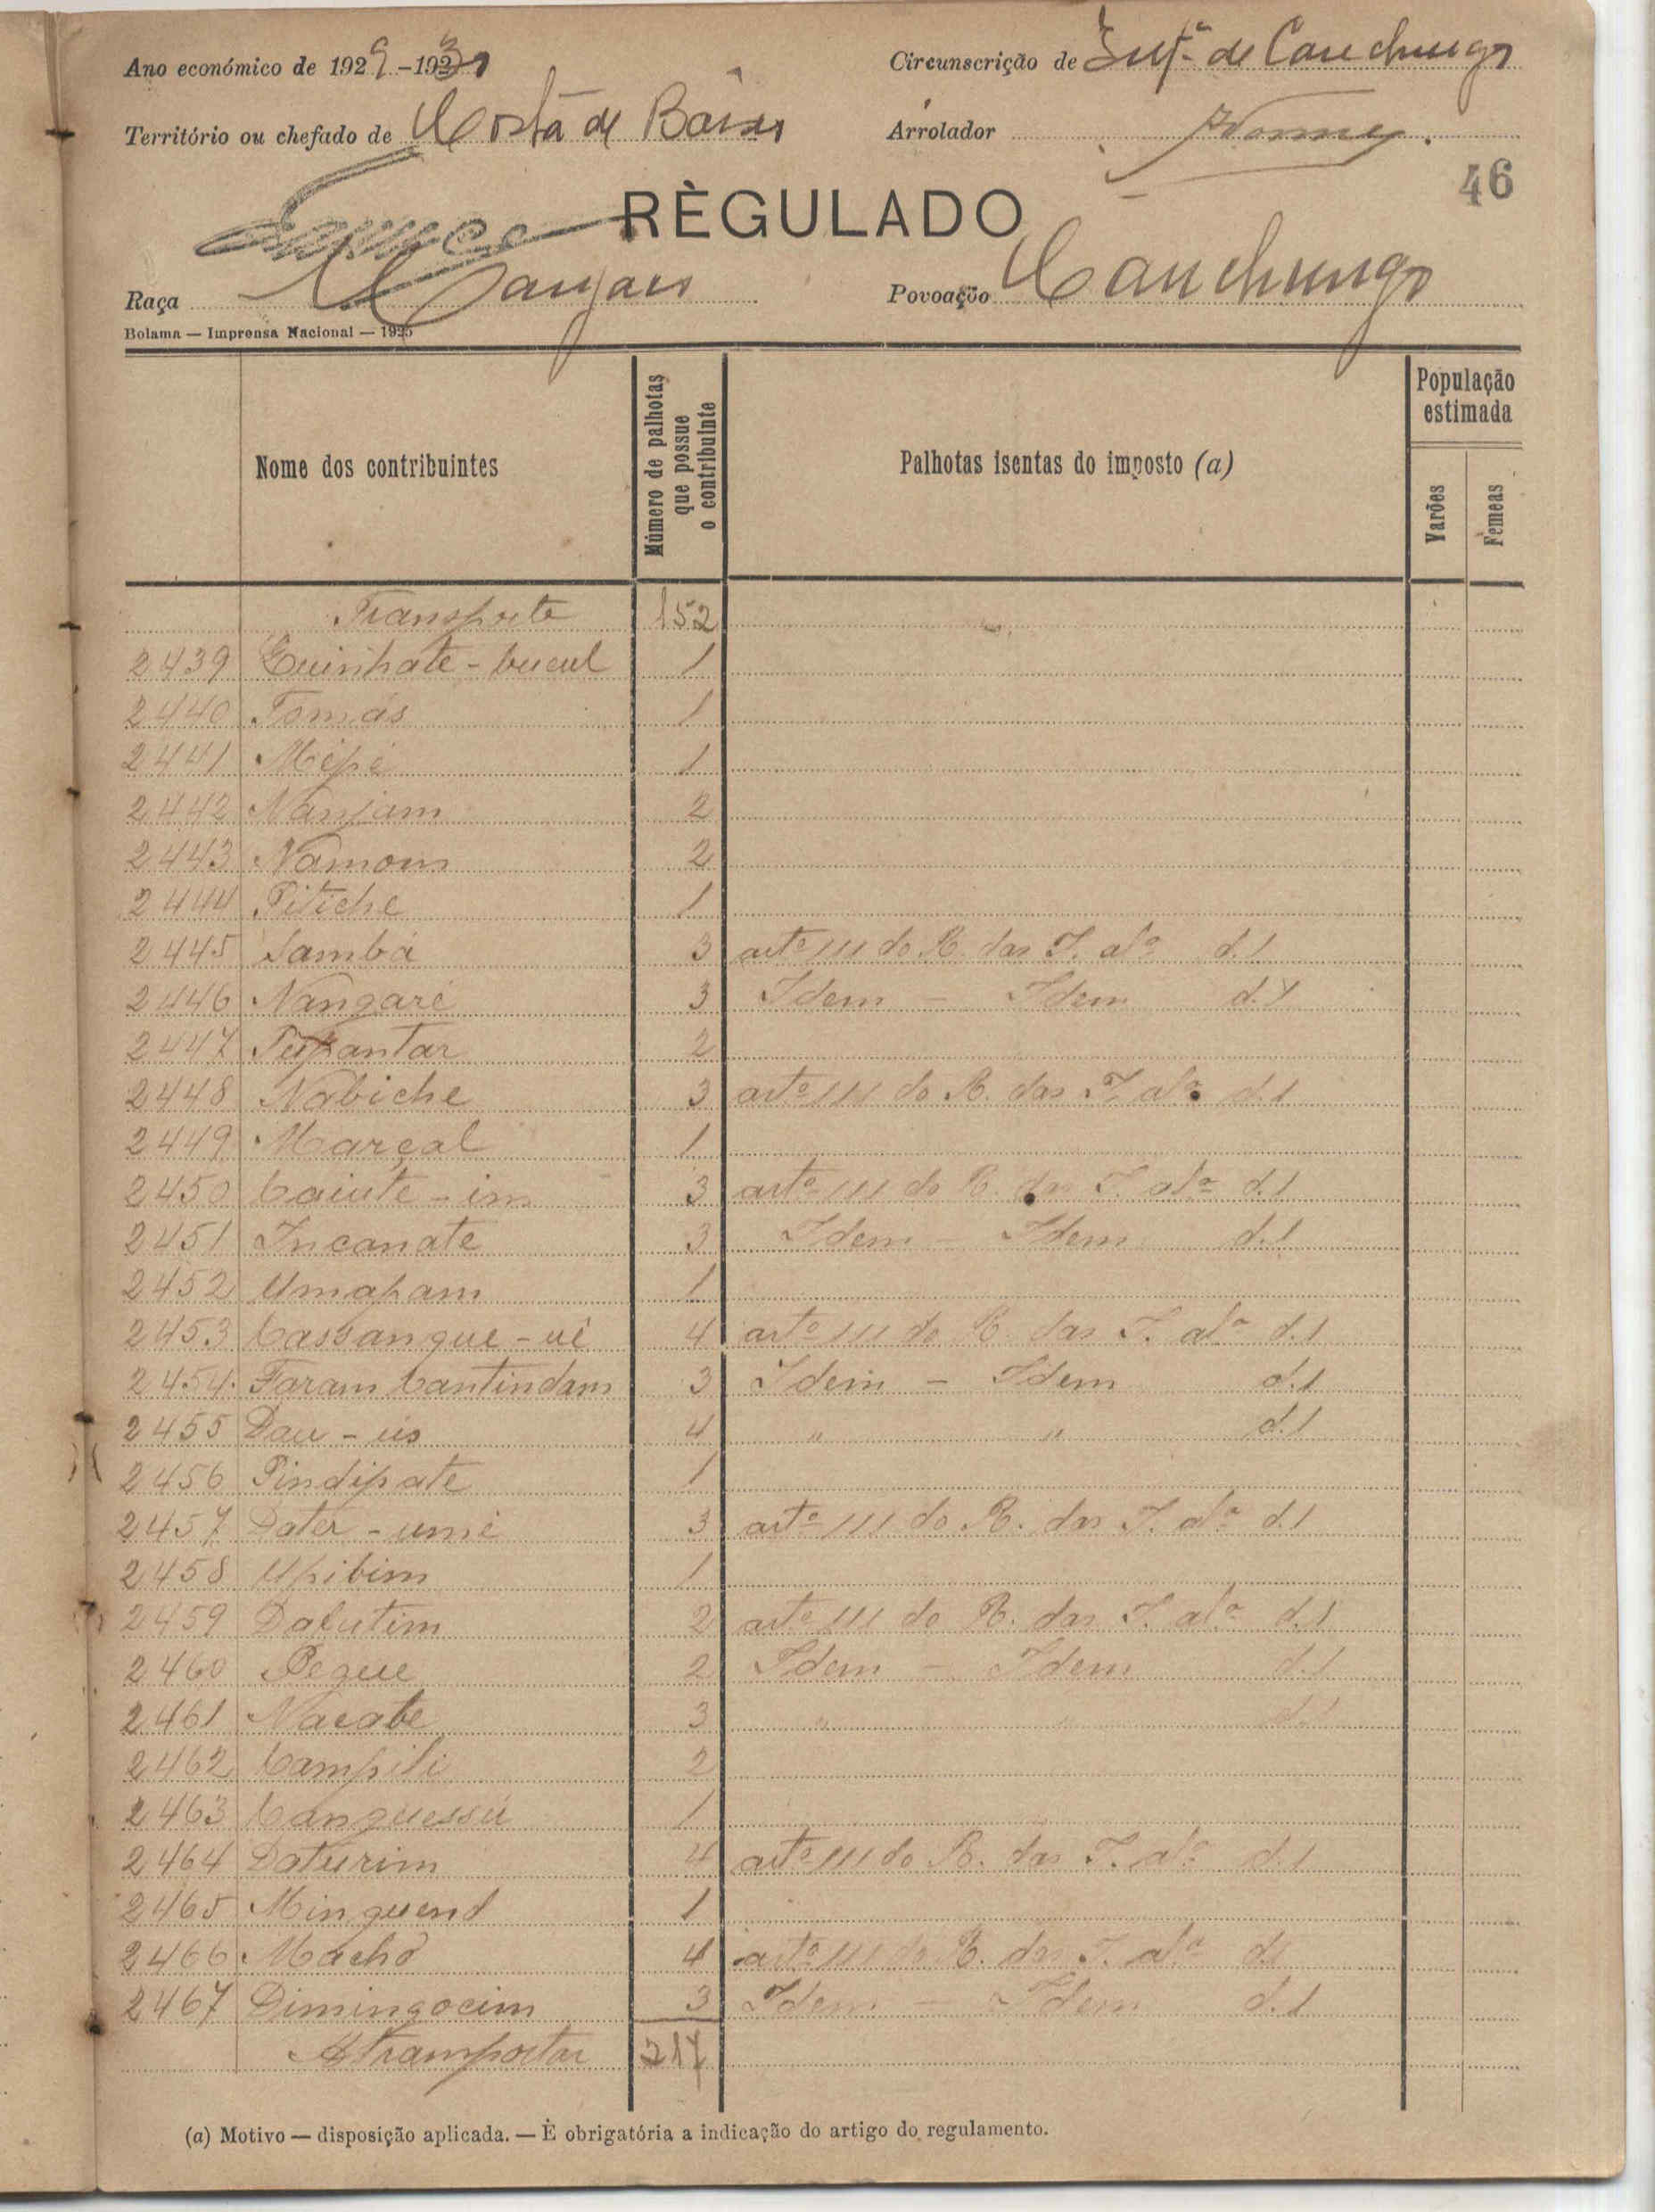 Ano económico de 1929-1930
Circunscrição de de Canchungo
Território ou chefado de Costa de Baixo
Arrolador
46
RÈGULADO
Raça Manjaco
Povoação Canchungo
Bolama — Imprensa Nacional — 1925
Nome dos contribuintes
Múmero de palhotas que possue o contribuinte
Palhotas isentas do imposto (a)
População estimada
Varões
Fêmeas
Transporte 152
2439 Cuinhate - bucul 1
2440 Tomás 1
2441 Mépé 1
2442 Nanjam 2
2443 Namom 2
2444 Pitiche 1
2445 Sambá 3 artº 111 do R. das I. alª d.1
2446 Nangaré 3 Idem - Idem d.1
2447 2
2448 Nabiche 3 artº 111 do R. das I. alª d.1
2449 Marçal 1
2450 Caiute - im 3 artº 111 do R. das I. alª d.1
2451 Incanate 3 Idem - Idem d.1
2452 Umapam 1
2453 Cassangue - uê 4 artº 111 do R. das I. alª d.1
2454 Faram Cantindam 3 Idem - Idem d.1
2455 Dau - ús 4 " " d.1
2456 Pindipate 1
2457 Dater - umé 3 artº 111 do R. das I. alª d.1
2458 Upibim 1
2459 Dabutim 2 artº 111 do R. das I. alª d.1
2460 Pegue 2 Idem - Idem d.1
2461 Nacabe 3 " " d.1
2462 Campili 2
2463 Canguessú 1
2464 Daturim 4 artº 111 do R. das I. alª d.1
2465 Minguend 1
2466 Machô 4 artº 111 do R. das I. alª d.1
2467 Dimingocim 3 Idem - Idem d.1
A transportar 217
(a) Motivo — disposição aplicada. — È obrigatória a indicação do artigo do regulamento.